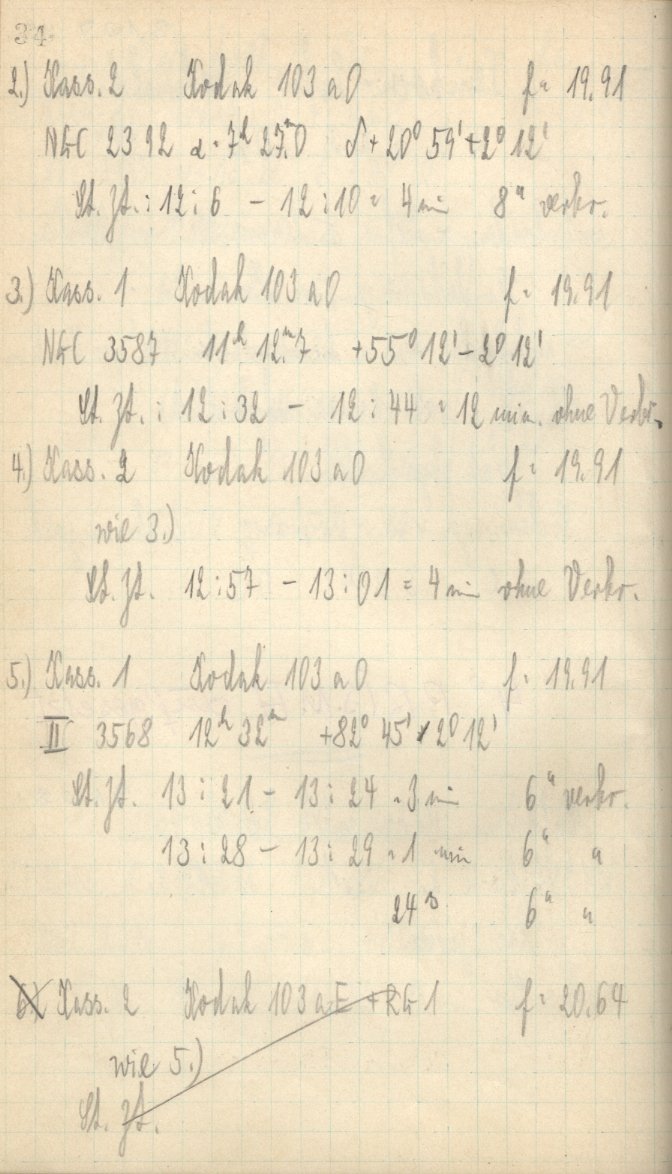 34
2.) Kass. 2 Kodak 103 aO f = 19.91
NGC 2392 α = 7ʰ 27ᵐ.0 δ + 20° 59' + 2° 12'
St. Zt.: 12 : 6 – 12 : 10 = 4 min 8" verkr.
3.) Kass. 1 Kodak 103 aO f = 19.91
NGC 3587 11ʰ 12ᵐ.7 +55° 12' – 2° 12'
St. Zt. : 12 : 32 – 12 : 44 = 12 min. ohne Verkr.
4.) Kass. 2 Kodak 103 aO f = 19.91
wie 3.)
St. Zt. 12 : 57 – 13 : 01 = 4 min ohne Verkr.
5.) Kass. 1 Kodak 103 aO f = 19.91
II 3568 12ʰ 32ᵐ +82° 45' 2° 12'
St. Zt. 13 : 21 – 13 : 24 = 3 min 6" verkr.
13 : 28 – 13 : 29 = 1 min 6" "
24ˢ 6" "
6.) Kass. 2 Kodak 103 aE + RG 1 f = 20.64
wie 5.)
St. Zt.